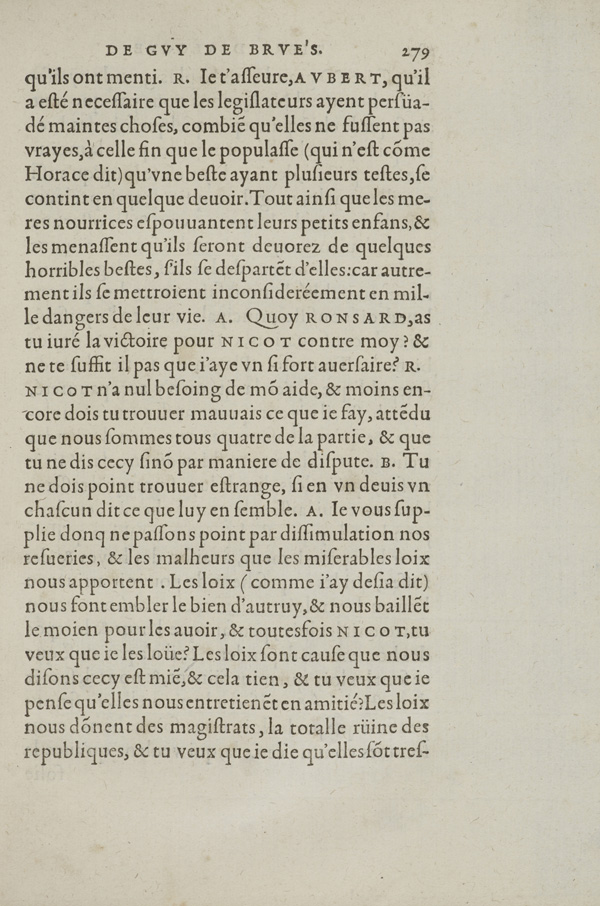 DE GVY DE BRVE'S. 279
qu'ils ont menti. R. Ie t'aſſeure, AVBERT, qu'il
a eſté neceſſaire que les legiſlateurs ayent perſüa-
dé maintes choſes, combiẽ qu'elles ne fuſſent pas
vrayes, à celle fin que le populaſſe (qui n'eſt cõme
Horace dit) qu'vne beſte ayant pluſieurs teſtes, ſe
contint en quelque deuoir. Tout ainſi que les me-
res nourrices eſpouuantent leurs petits enfans, &
les menaſſent qu'ils ſeront deuorez de quelques
horribles beſtes, ſ'ils ſe deſpartẽt d'elles: car autre-
ment ils ſe mettroient inconſideréement en mil-
le dangers de leur vie. A. Quoy RONSARD, as
tu iuré la victoire pour NICOT contre moy? &
ne te ſuffit il pas que i'aye vn ſi fort auerſaire? R.
NICOT n'a nul beſoing de mõ aide, & moins en-
core dois tu trouuer mauuais ce que ie fay, attẽdu
que nous ſommes tous quatre de la partie, & que
tu ne dis cecy ſinõ par maniere de diſpute. B. Tu
ne dois point trouuer eſtrange, ſi en vn deuis vn
chaſcun dit ce que luy en ſemble. A. Ie vous ſup-
plie donq ne paſſons point par diſſimulation nos
reſueries, & les malheurs que les miſerables loix
nous apportent. Les loix (comme i'ay deſia dit)
nous font embler le bien d'autruy, & nous baillẽt
le moien pour les auoir, & toutesfois NICOT, tu
veux que ie les loüe? Les loix ſont cauſe que nous
diſons cecy eſt miẽ, & cela tien, & tu veux que ie
penſe qu'elles nous entretienẽt en amitié? Les loix
nous dõnent des magiſtrats, la totalle rüine des
republiques, & tu veux que ie die qu'elles ſõt treſ-